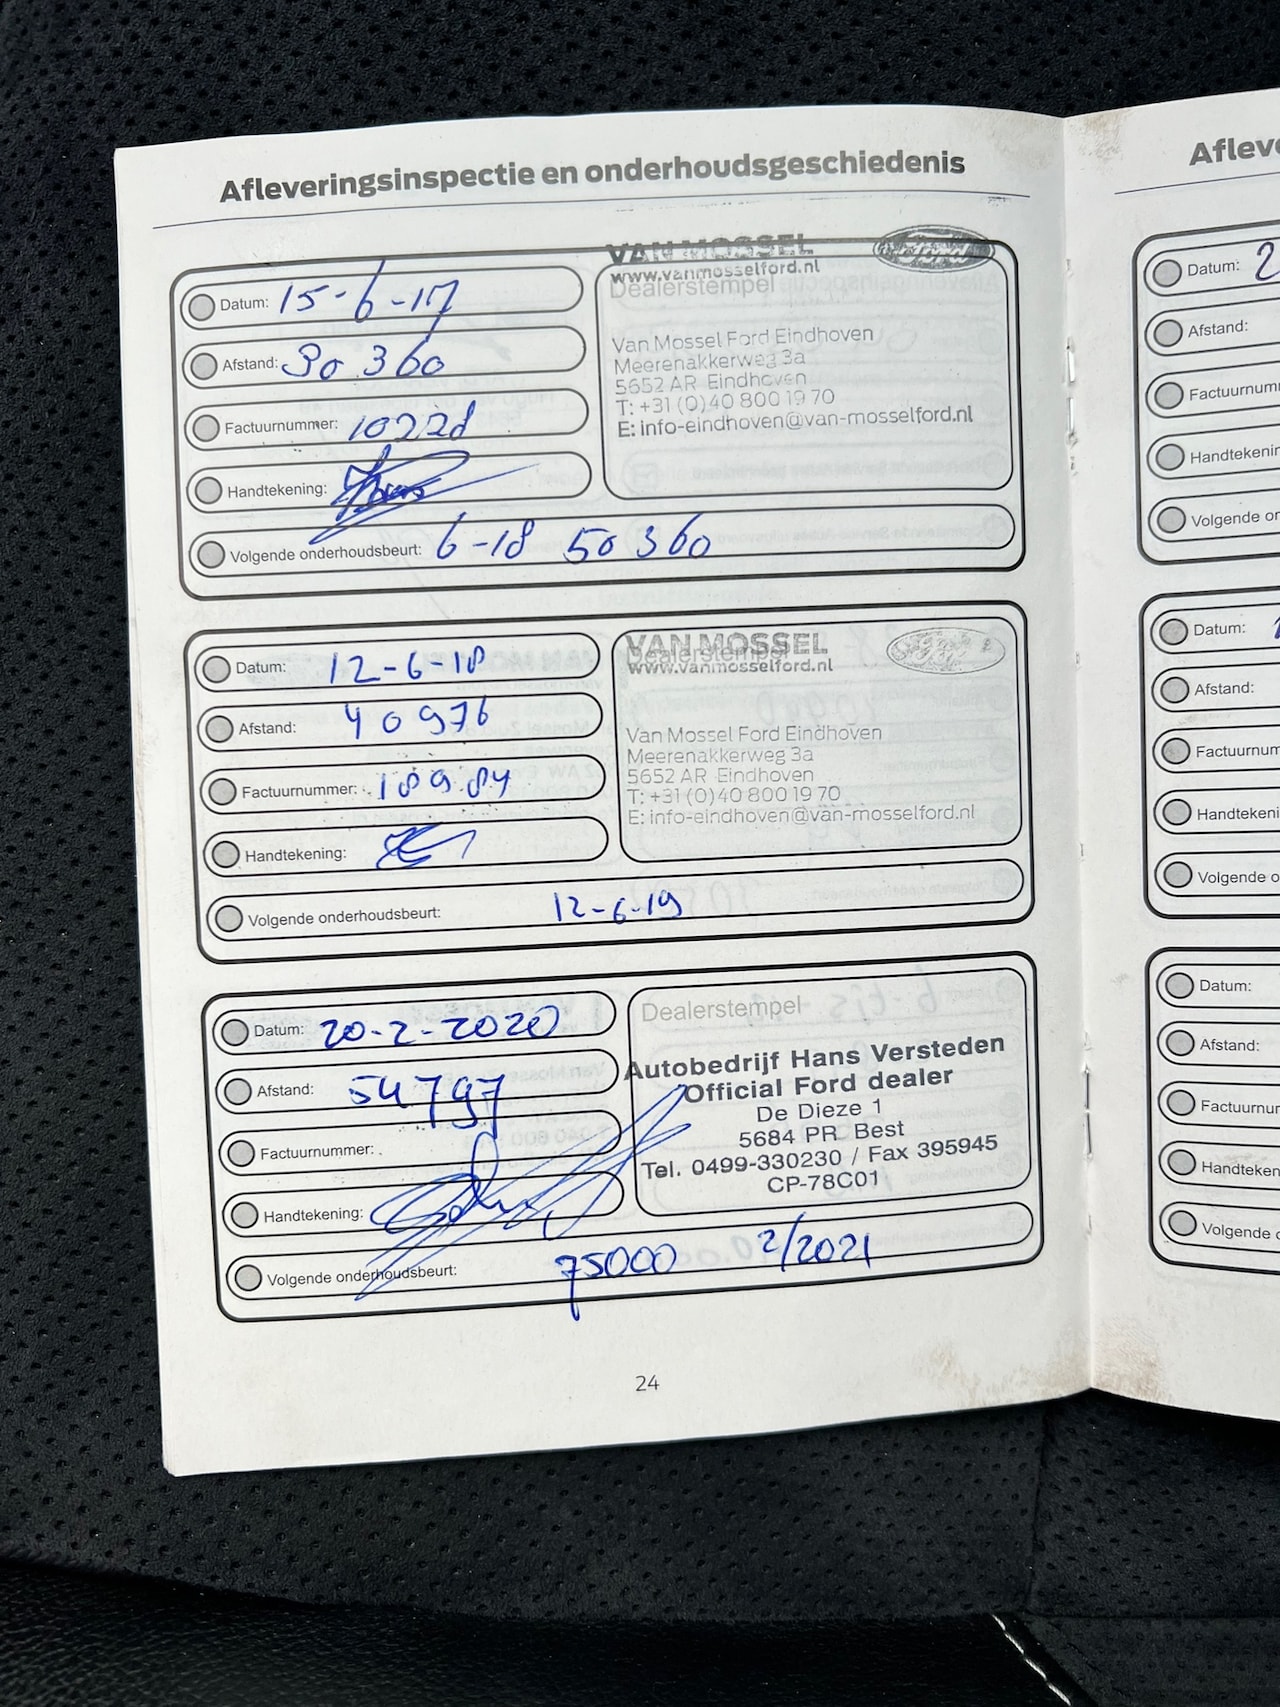 Afleveringsinspectie en onderhoudsgeschiedenis
VAN MOSSEL Ford
www.vanmosselford.nl
Dealerstempel
Datum: 15-6-17
Afstand: 30 360
Factuurnummer: 10228
Handtekening:
Van Mossel Ford Eindhoven
Meerenakkerweg 3a
5652 AR Eindhoven
T: +31 (0)40 800 19 70
E: info-eindhoven@van-mosselford.nl
Volgende onderhoudsbeurt: 6-18 50 360
Datum: 12-6-18
Afstand: 40976
Factuurnummer: 18984
Handtekening:
VAN MOSSEL Ford
Dealerstempel
www.vanmosselford.nl
Van Mossel Ford Eindhoven
Meerenakkerweg 3a
5652 AR Eindhoven
T: +31 (0)40 800 19 70
E: info-eindhoven@van-mosselford.nl
Volgende onderhoudsbeurt: 12-6-19
Datum: 20-2-2020
Afstand: 54797
Factuurnummer:
Handtekening:
Dealerstempel
Autobedrijf Hans Versteden
Official Ford dealer
De Dieze 1
5684 PR Best
Tel. 0499-330230 / Fax 395945
CP-78C01
Volgende onderhoudsbeurt: 75000 2/2021
24
Datum: 2
Afstand:
Datum:
Afstand:
Datum:
Afstand: